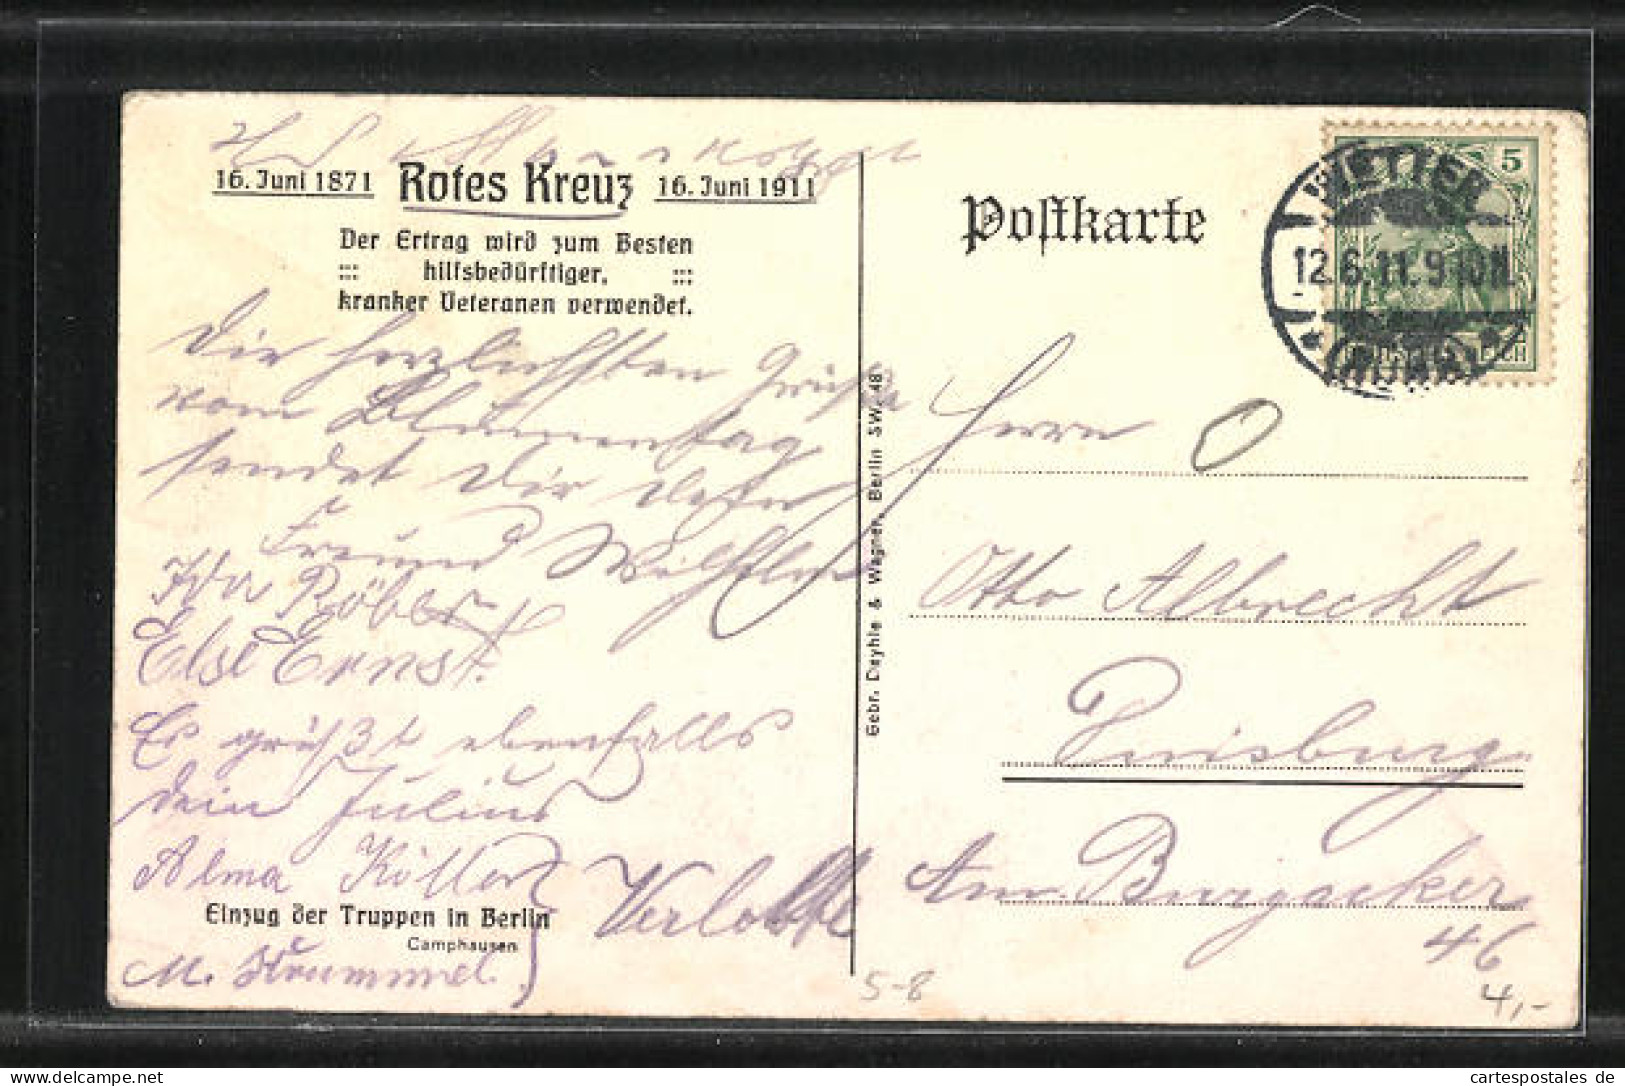 16. Juni 1871 Rotes Kreuz 16. Juni 1911
Der Ertrag wird zum Besten
::: hilfsbedürftiger, :::
kranker Veteranen verwendet.
Die herzlichsten Grüße
vom Blumentag
sendet Dir dein
Freund Wilhelm
Ida
Else Ernst.
Es grüßt ebenfalls
dein Julius
Alma
Einzug der Truppen in Berlin
Camphausen
M. Krummel.
Verlobte
Gebr. Deyhle & Wagner, Berlin SW. 48
Postkarte
5
WETTER
12.6.11. 9-10N.
* (RUHR) *
Herrn
Otto Albrecht
Duisburg
Am Burgacker
46
5-8
4,-
cartespostales de